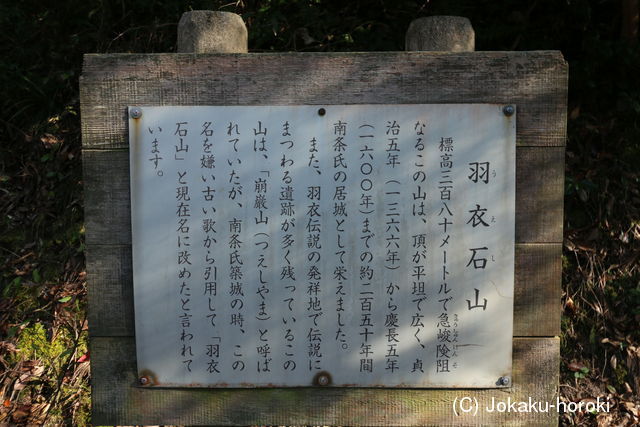 羽衣石山
うえし
標高三百八十メートルで急峻険阻
きゅうしゅんけんそ
なるこの山は、頂が平坦で広く、貞
治五年（一三六六年）から慶長五年
（一六〇〇年）までの約二百五十年間
南条氏の居城として栄えました。
また、羽衣伝説の発祥地で伝説に
まつわる遺跡が多く残っているこの
山は、「崩巌山（つえしやま）と呼ば
れていたが、南条氏築城の時、この
名を嫌い古い歌から引用して「羽衣
石山」と現在名に改めたと言われて
います。
(C) Jokaku-horoki